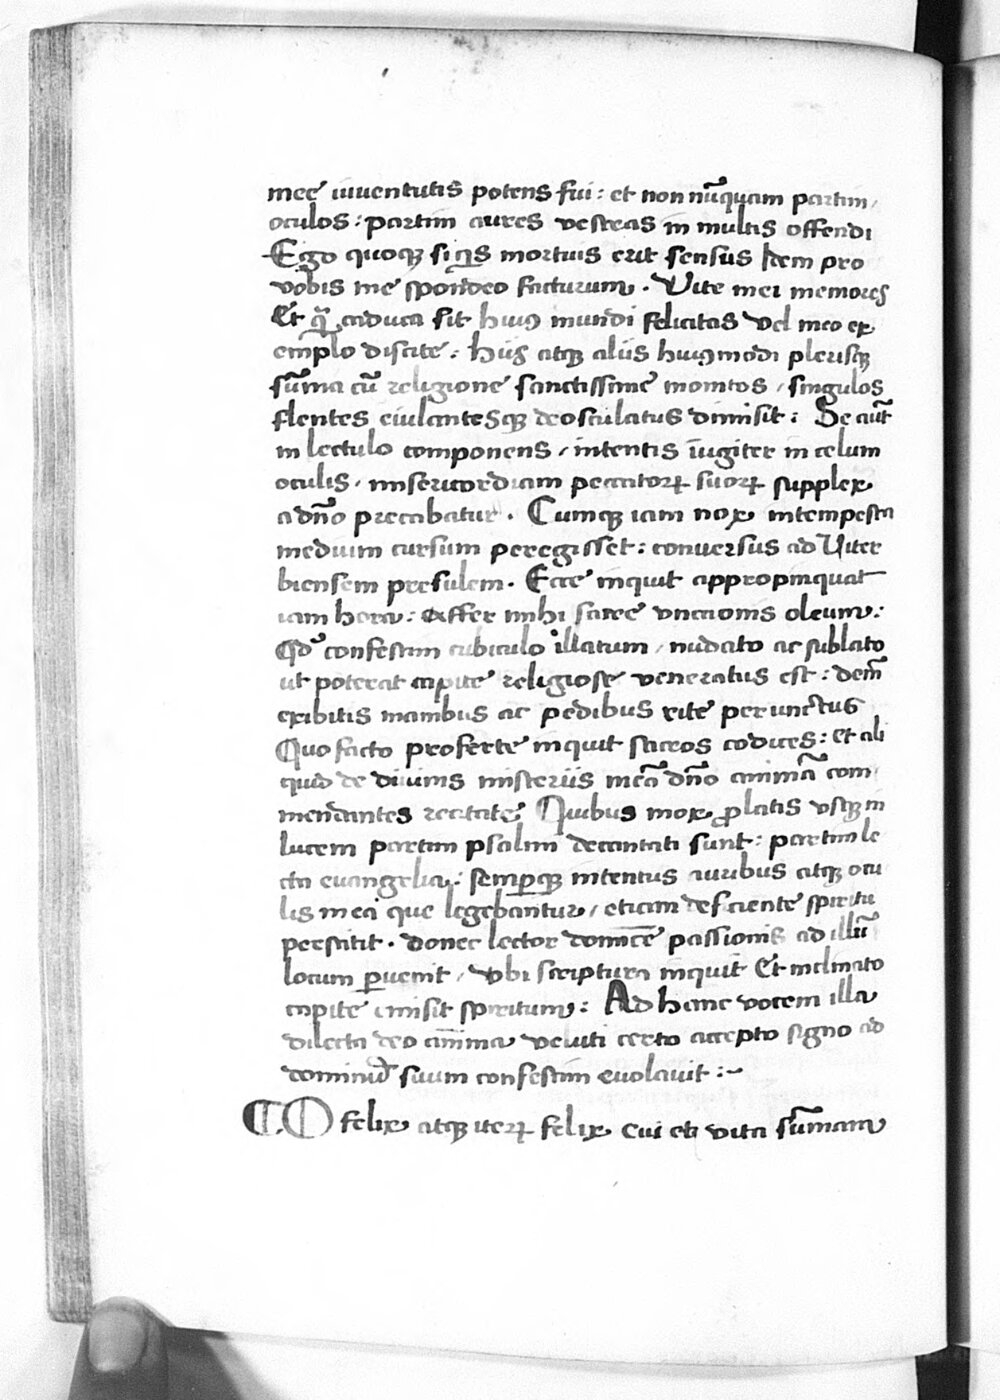 meę iuuentutis potens fui : et non nūquam partim
oculos : partim aures vestras in multis offendi
Ego quoqꝫ si q̇s mortuis erit sensus Idem pro
vobis me spondeo facturum . Vite mei memores
Et q̃ caduca sit huiꝯ mundi felicitas vel meo ex
emplo discite : hijs atqꝫ alijs huiꝯmodi plerisqꝫ
sūma cū religione sanctissime monitos / singulos
flentes eiulantesqꝫ deosculatus dimisit : Se aūt
in lectulo componens / intentis iugiter in celum
oculis / misericordiam peccatorꝝ suorꝝ supplex
a dño precabatur . Cumqꝫ iam nox intempesta
medium cursum peregisset : conuersus ad Viter
biensem presulem . Ecce inquit appropinquat
iam hora : Affer mihi sacre vnctionis oleum :
Qđ confestim cubiculo illatum / nudato ac sublato
ut poterat capite religiose veneratus est : dem̃
exibitis manibus ac pedibus rite perunctus
Quo facto proferte inquit sacros codices : et ali
quid de diuinis misterijs meā dño animā com
mendantes recitate Quibus mox ꝓlatis vsqꝫ in
lucem partim psalmi decantati sunt : partim le
cta euangelia : semꝑqꝫ intentus auribus atqꝫ ocu
lis in ea que legebantur / etiam deficiente spiritu
perstitit . donec lector dominice passionis ad illū
locum ꝑuenit / vbi scriptura inquit Et inclinato
capite emisit spiritum : Ad hanc vocem illa
dilecta deo anima veluti certo accepto signo ad
dominū suum confestim euolauit :~
O felix atqꝫ iterꝝ felix cui et vita sūmam